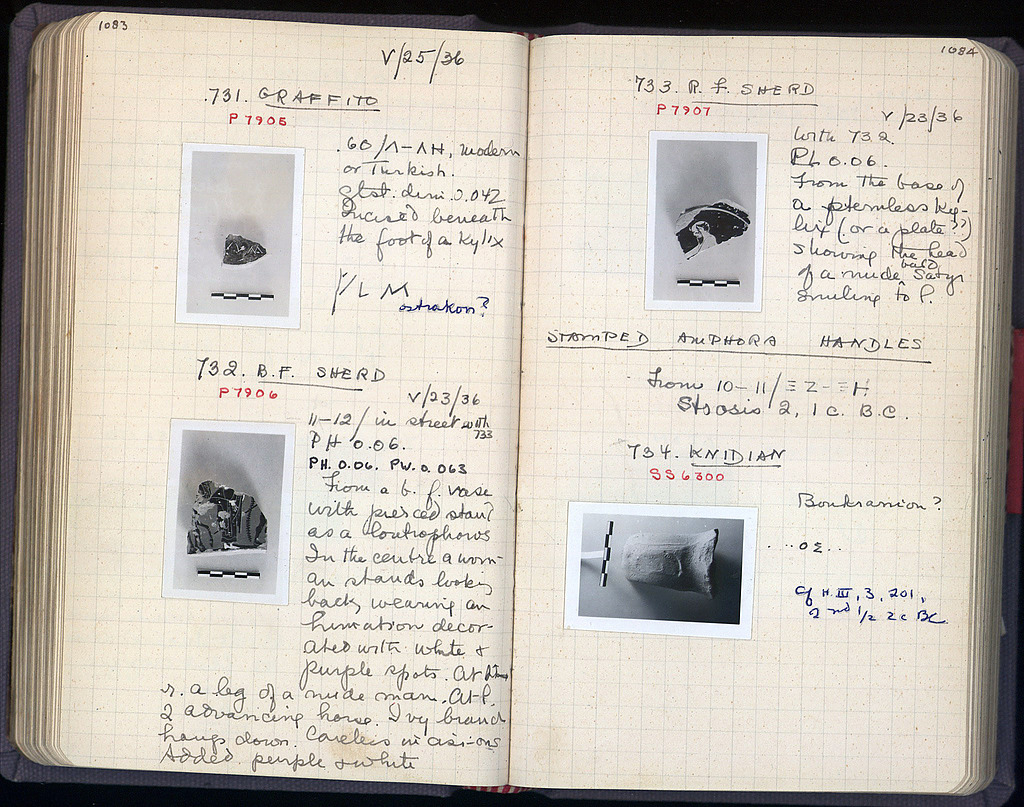 1083
V/25/36
731. GRAFFITO
P 7905
60/Λ-ΛΗ, modern
or Turkish.
gtst. dim. 0.042
Incised beneath
the foot of a kylix
L M
ostrakon?
732. B.F. SHERD
P 7906
V/23/36
11-12/ in street with
733
PH 0.06.
PH. 0.06. PW. 0.063
From a b. f. vase
with pierced stand
as a loutrophoros
In the centre a wom-
an stands looking
back, wearing an
himation decor-
ated with white &
purple spots. At
r. a leg of a nude man. At l.
2 advancing horse. Ivy branch
hangs down. Careless incisions
Added purple & white
1084
733. R.F. SHERD
P 7907
V/23/36
With 732.
PL 0.06.
From the base of
a stemless ky-
lix (or a plate??)
showing the head
of a nude bald Satyr
smiling to l.
STAMPED AMPHORA HANDLES
From 10-11/ΞΖ-ΞΗ
Stoosis 2, 1 c. B.C.
734. KNIDIAN
SS 6300
Boukranion?
..ΟΣ..
cf H. III, 3, 201,
2nd 1/2 2c BC